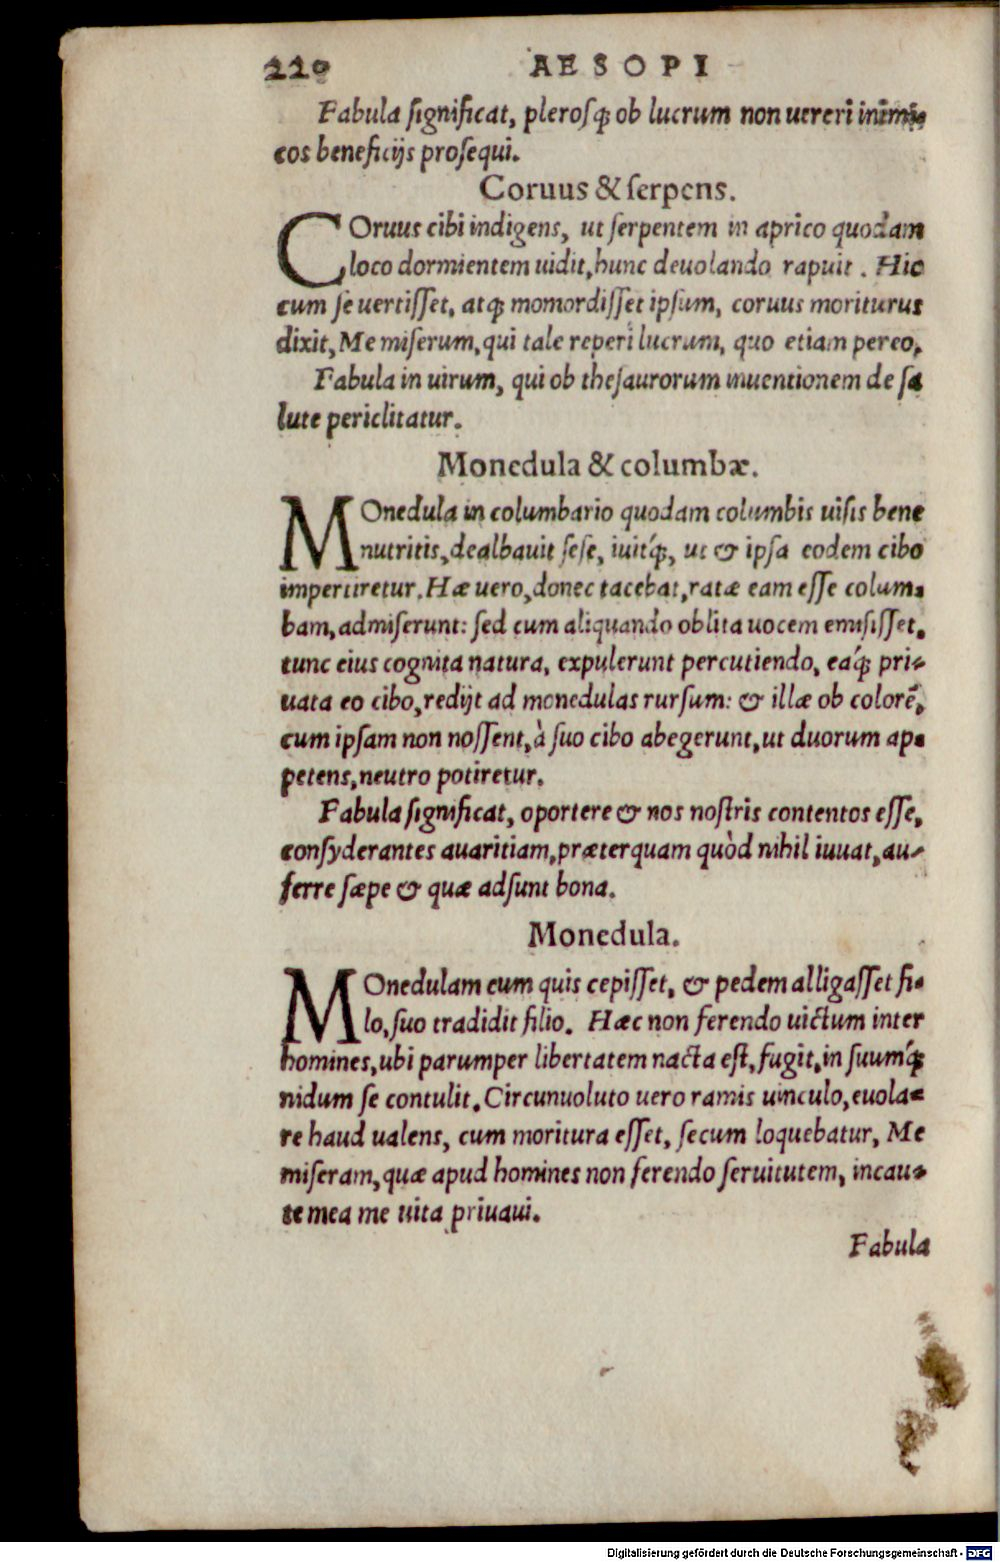 220 AESOPI
Fabula ſignificat, pleroſq́; ob lucrum non uereri inimi-
cos beneficijs proſequi.
Coruus & ſerpens.
COruus cibi indigens, ut ſerpentem in aprico quodam
loco dormientem uidit, hunc deuolando rapuit. Hic
cum ſe uertiſſet, atq; momordiſſet ipſum, coruus moriturus
dixit, Me miſerum, qui tale reperi lucrum, quo etiam pereo.
Fabula in uirum, qui ob theſaurorum inuentionem de ſa
lute periclitatur.
Monedula & columbæ.
MOnedula in columbario quodam columbis uiſis bene
nutritis, dealbauit ſeſe, iuitq́;, ut & ipſa eodem cibo
impertiretur. Hæ uero, donec tacebat, ratæ eam eſſe colum-
bam, admiſerunt: ſed cum aliquando oblita uocem emiſiſſet,
tunc eius cognita natura, expulerunt percutiendo, eaq́; pri-
uata eo cibo, redijt ad monedulas rurſum: & illæ ob colorẽ,
cum ipſam non noſſent, à ſuo cibo abegerunt, ut duorum ap-
petens, neutro potiretur.
Fabula ſignificat, oportere & nos noſtris contentos eſſe,
conſyderantes auaritiam, præterquam quòd nihil iuuat, au-
ferre ſæpe & quæ adſunt bona.
Monedula.
MOnedulam cum quis cepiſſet, & pedem alligaſſet fi-
lo, ſuo tradidit filio. Hæc non ferendo uictum inter
homines, ubi parumper libertatem nacta eſt, fugit, in ſuumq́;
nidum ſe contulit. Circunuoluto uero ramis uinculo, euola-
re haud ualens, cum moritura eſſet, ſecum loquebatur, Me
miſeram, quæ apud homines non ferendo ſeruitutem, incau-
te mea me uita priuaui.
Fabula
Digitalisierung gefördert durch die Deutsche Forschungsgemeinschaft - DFG